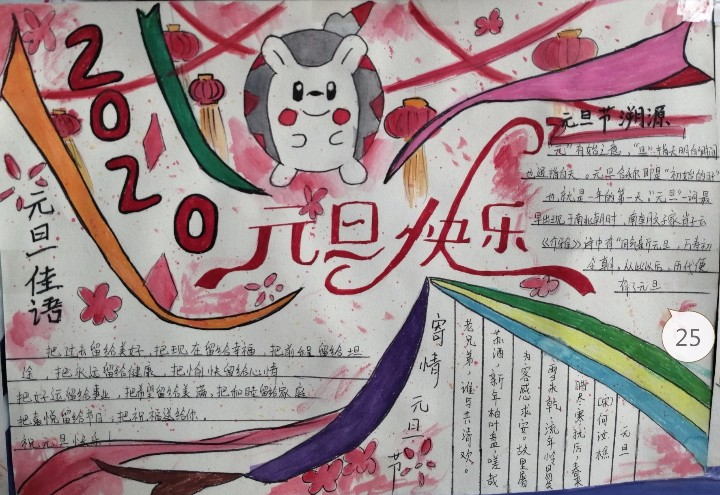 2020
元旦快乐
元旦节溯源
"元"有始之意,"旦"指天明的时间
也通指白天。元旦合称即是"初始的日"
也就是一年的第一天"元旦"一词最
早出现于南北朝时,南朝文学家萧子云
《介雅》诗中有"四气新元旦,万寿初
今朝。从此以后,历代便
有了元旦
元旦佳语
把过去留给美好,把现在留给幸福,把前程留给坦
途,把永远留给健康,把愉快留给心情
把好运留给事业,把希望留给美满,把和睦留给家庭
把喜悦留给节日,把祝福送给你,
祝元旦快乐!
寄情元旦节
元旦
陈
腊尽寒犹后,春
雪未乾,流年惊
为客感求安。故里屠
苏酒,新年柏叶盘,嗟哉
老兄弟,谁与共清欢。
25